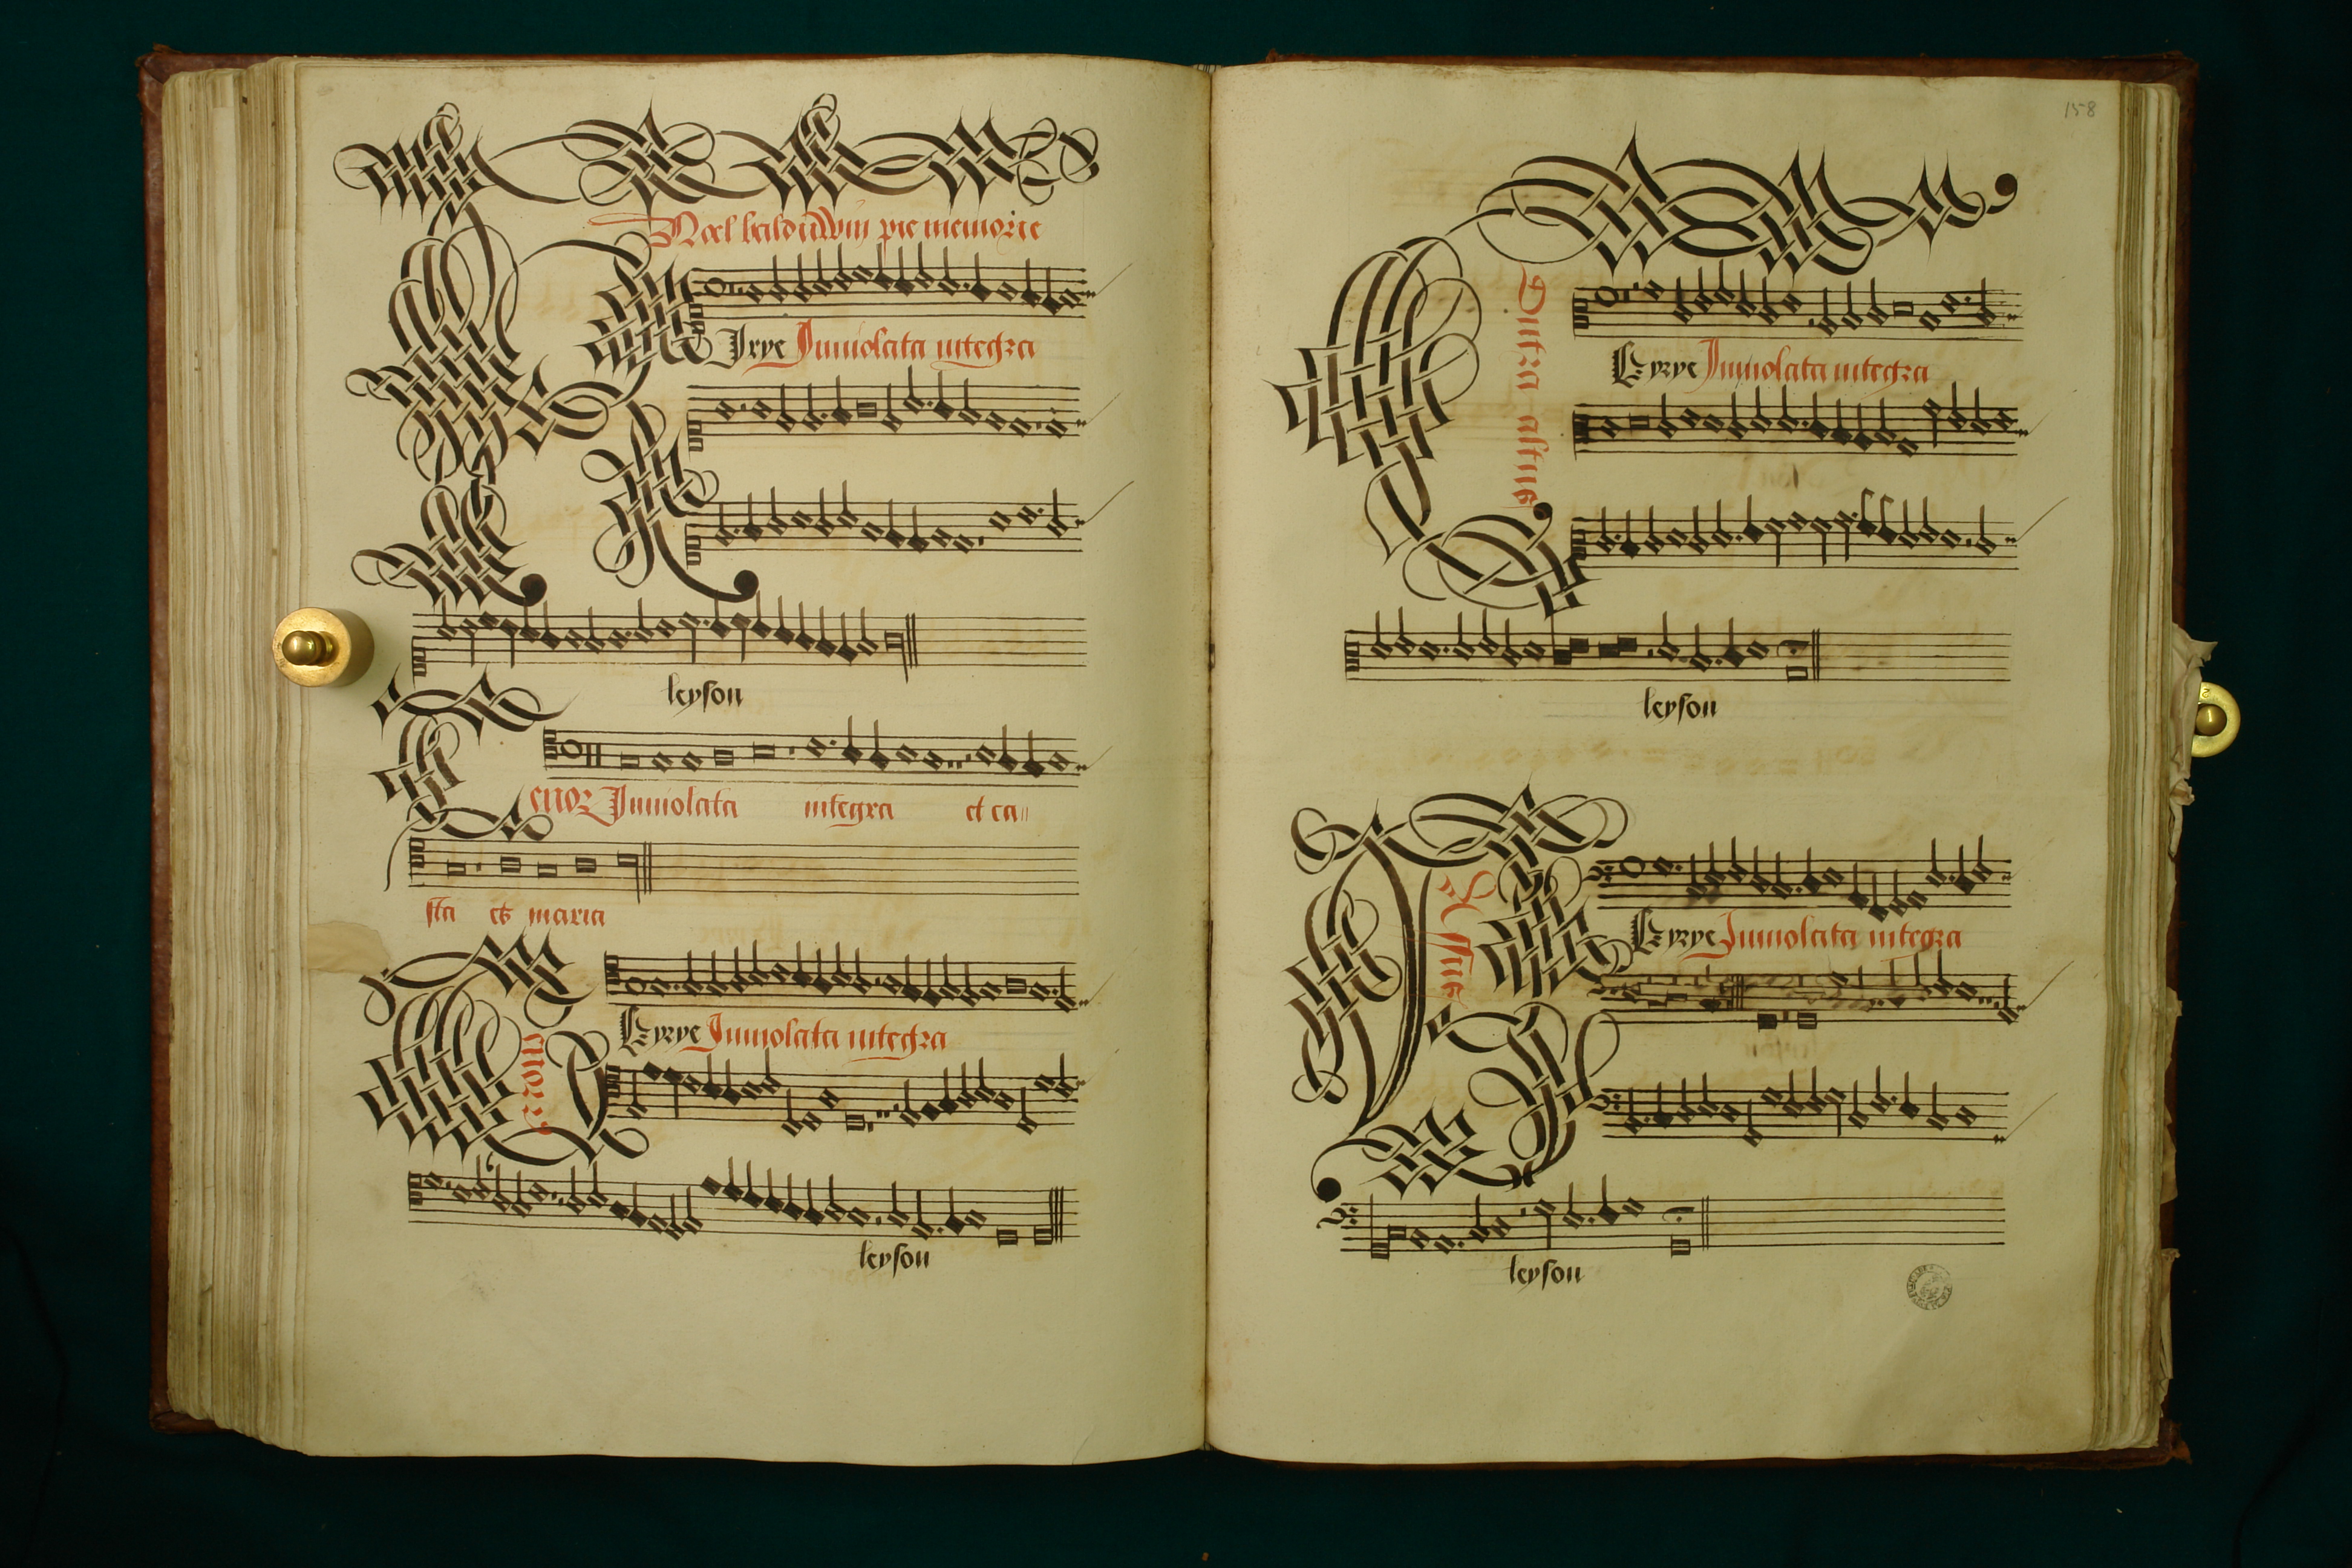 Noel balduwin pie memorie
Kyrye Inuiolata integra
leyson
Tenor Inuiolata integra et ca//
sta es maria
Tenor
Kyrye Inuiolata integra
leyson
158
Contra altus
Kyrye Inuiolata integra
leyson
Bassus
Kyrye Inuiolata integra
leyson